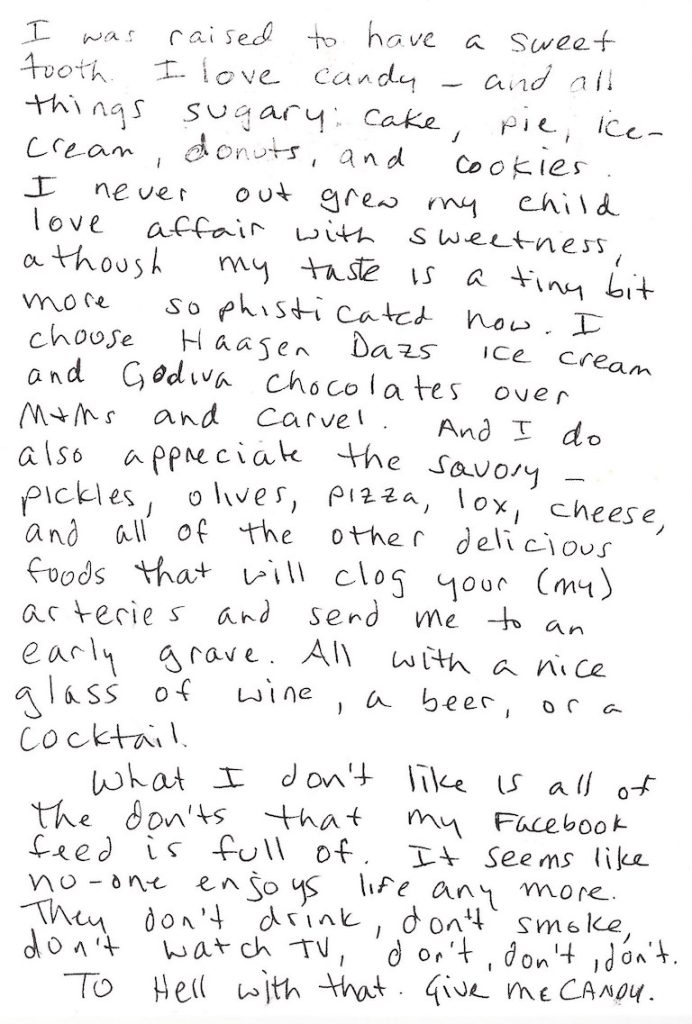 I was raised to have a sweet
tooth. I love candy – and all
things sugary: cake, pie, ice-
cream, donuts, and cookies.
I never out grew my child
love affair with sweetness,
athough my taste is a tiny bit
more sophisticated now. I
choose Haagen Dazs ice cream
and Godiva chocolates over
M+Ms and Carvel. And I do
also appreciate the savory –
pickles, olives, pizza, lox, cheese,
and all of the other delicious
foods that will clog your (my)
arteries and send me to an
early grave. All with a nice
glass of wine, a beer, or a
cocktail.
What I don't like is all of
the don'ts that my Facebook
feed is full of. It seems like
no-one enjoys life any more.
They don't drink, don't smoke,
don't watch TV, don't, don't, don't.
To Hell with that. Give me CANDY.